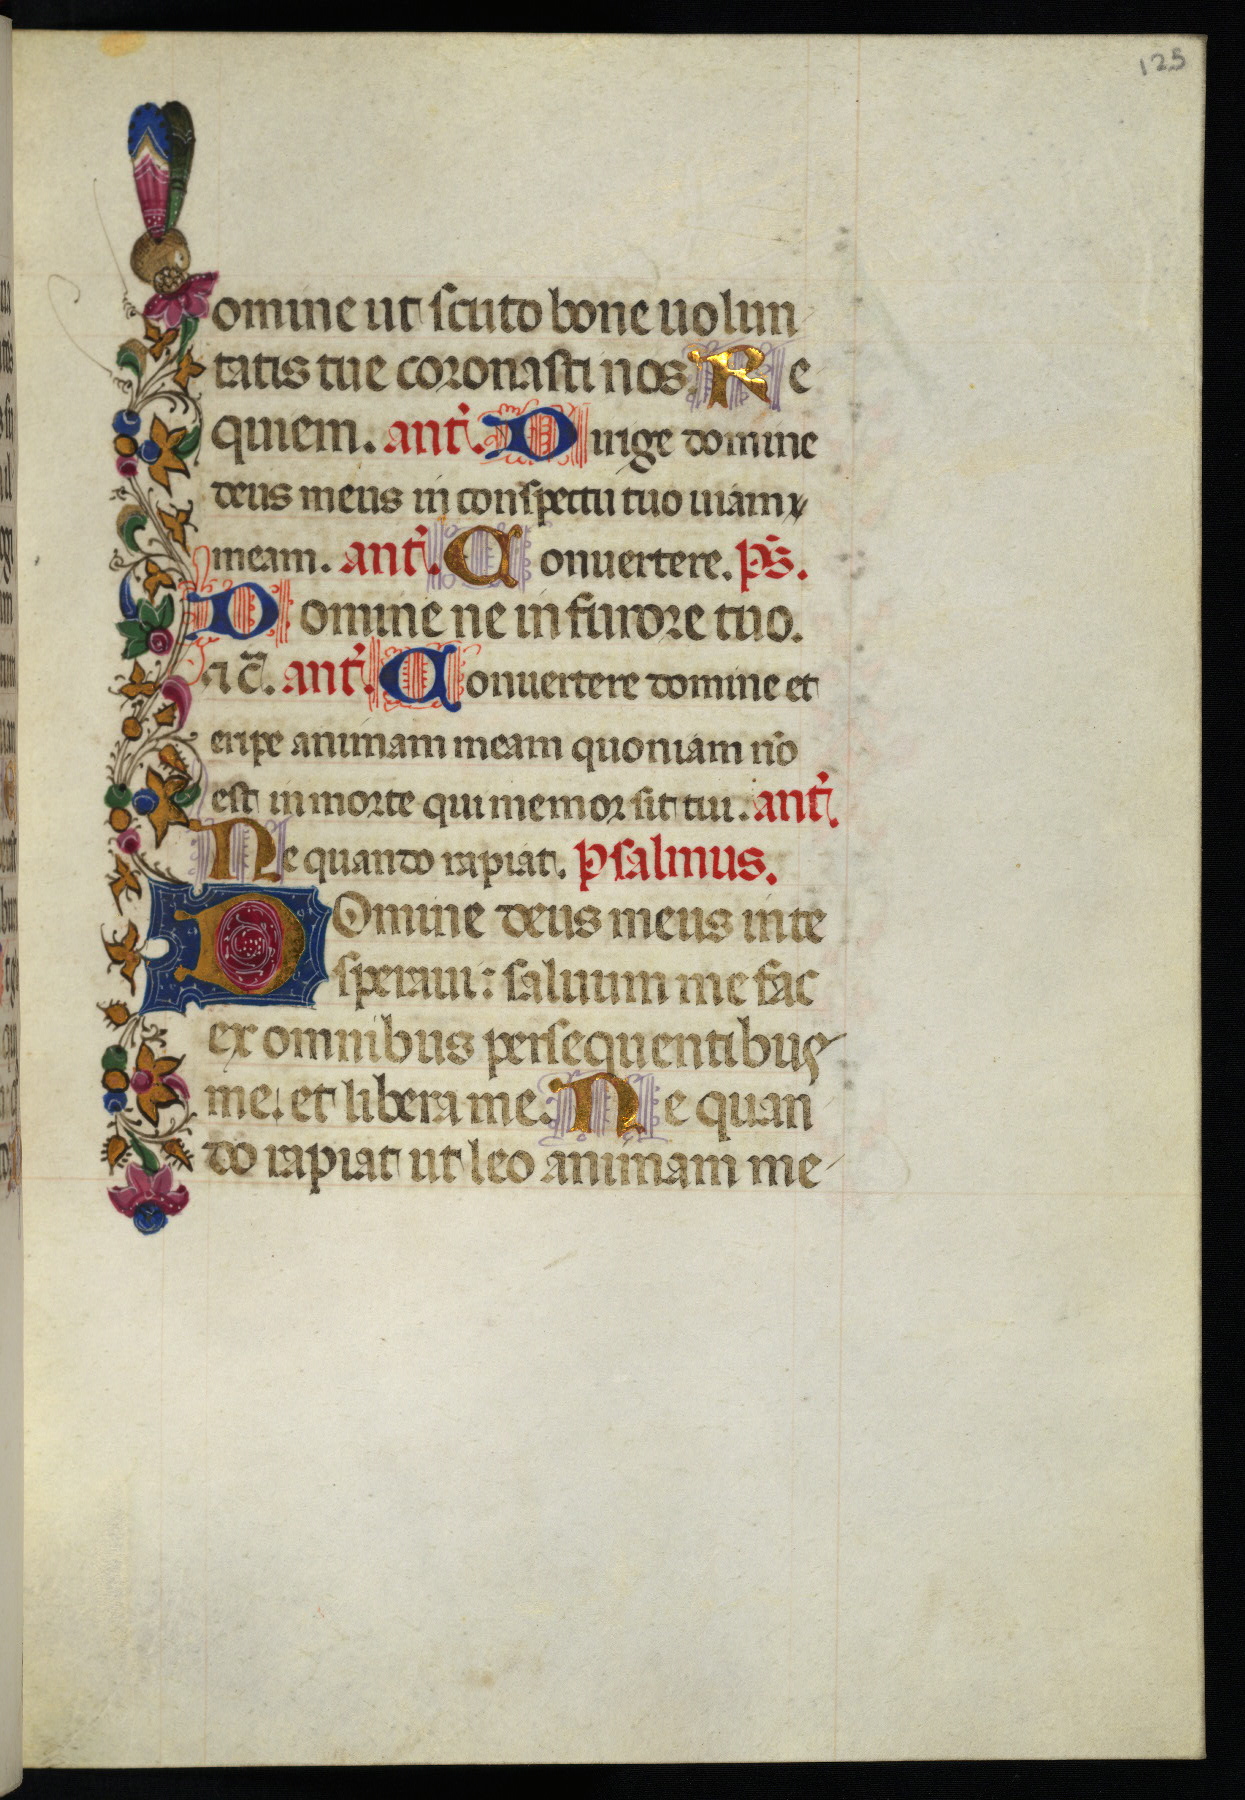 125
omine ut scuto bone uolun
tatis tue coronasti nos. Re
quiem. ant̄. Dirige domine
deus meus in conspectu tuo uiam
meam. ant̄. Conuertere. ps̄.
Domine ne in furore tuo.
⁊c̄. ant̄. Conuertere domine et
eripe animam meam quoniam nō
est in morte qui memor sit tui. ant̄.
Ne quando rapiat. psalmus.
DOmine deus meus in te
speraui: saluum me fac
ex omnibus persequentibus
me. et libera me. Ne quan
do rapiat ut leo animam me